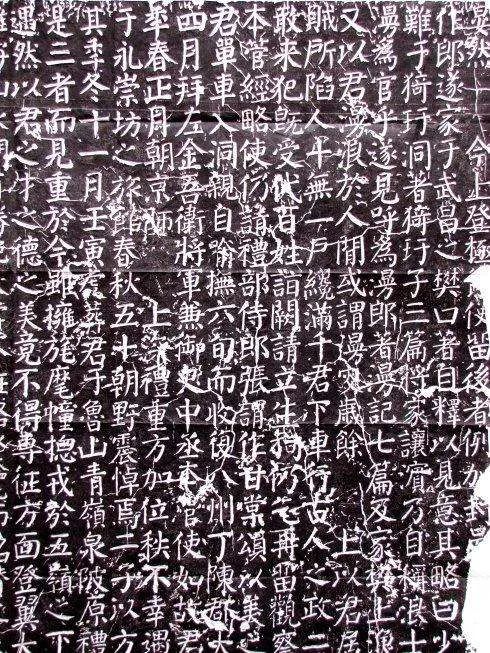 今上登極 使留後者例加封
作郎遂家于武昌之樊口者自釋以見意其略曰少
難于猗玗洞者猗玗子三篇將家讓濱乃自稱浪士
為官乎遂見呼為漫郎者漫記七篇及家樊上漁
又以君漫浪於人間或謂漫叟歲餘 上以君居
賊所陷人十無一戶纔滿千君下車行古人之政二
敢來犯既受代百姓詣闕請立生祠仍乞再留觀察
本管經略使仍請禮部侍郎張謂作甘棠頌以美
君單車入洞親自喻撫六旬而收復八州丁陳郡太
四月拜左金吾衛將軍兼御史中丞本管使如故君
年春正月朝京師 上深禮重方加位秩不幸遇
于永崇坊之旅館春秋五十朝野震悼焉二子以方
其年冬十一月壬寅虔葬君于魯山青嶺泉陂原禮
是二者而見重於今雖擁旄麾幢總戎於五嶺之下
遇然以君之才之德之美竟不得專征方面登翼大